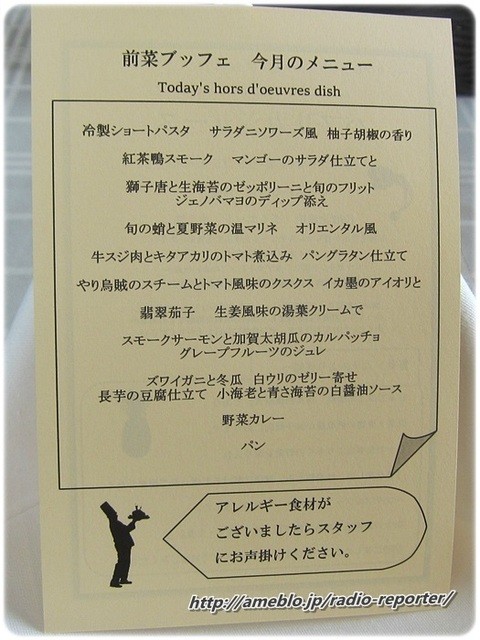 前菜ブッフェ　今月のメニュー
Today's hors d'oeuvres dish
冷製ショートパスタ　サラダニソワーズ風　柚子胡椒の香り
紅茶鴨スモーク　マンゴーのサラダ仕立てと
獅子唐と生海苔のゼッポリーニと旬のフリット
ジェノバマヨのディップ添え
旬の蛸と夏野菜の温マリネ　オリエンタル風
牛スジ肉とキタアカリのトマト煮込み　パングラタン仕立て
やり烏賊のスチームとトマト風味のクスクス　イカ墨のアイオリと
翡翠茄子　生姜風味の湯葉クリームで
スモークサーモンと加賀太胡瓜のカルパッチョ
グレープフルーツのジュレ
ズワイガニと冬瓜　白ウリのゼリー寄せ
長芋の豆腐仕立て　小海老と青さ海苔の白醤油ソース
野菜カレー
パン
アレルギー食材が
ございましたらスタッフ
にお声掛けください。
http://ameblo.jp/radio-reporter/